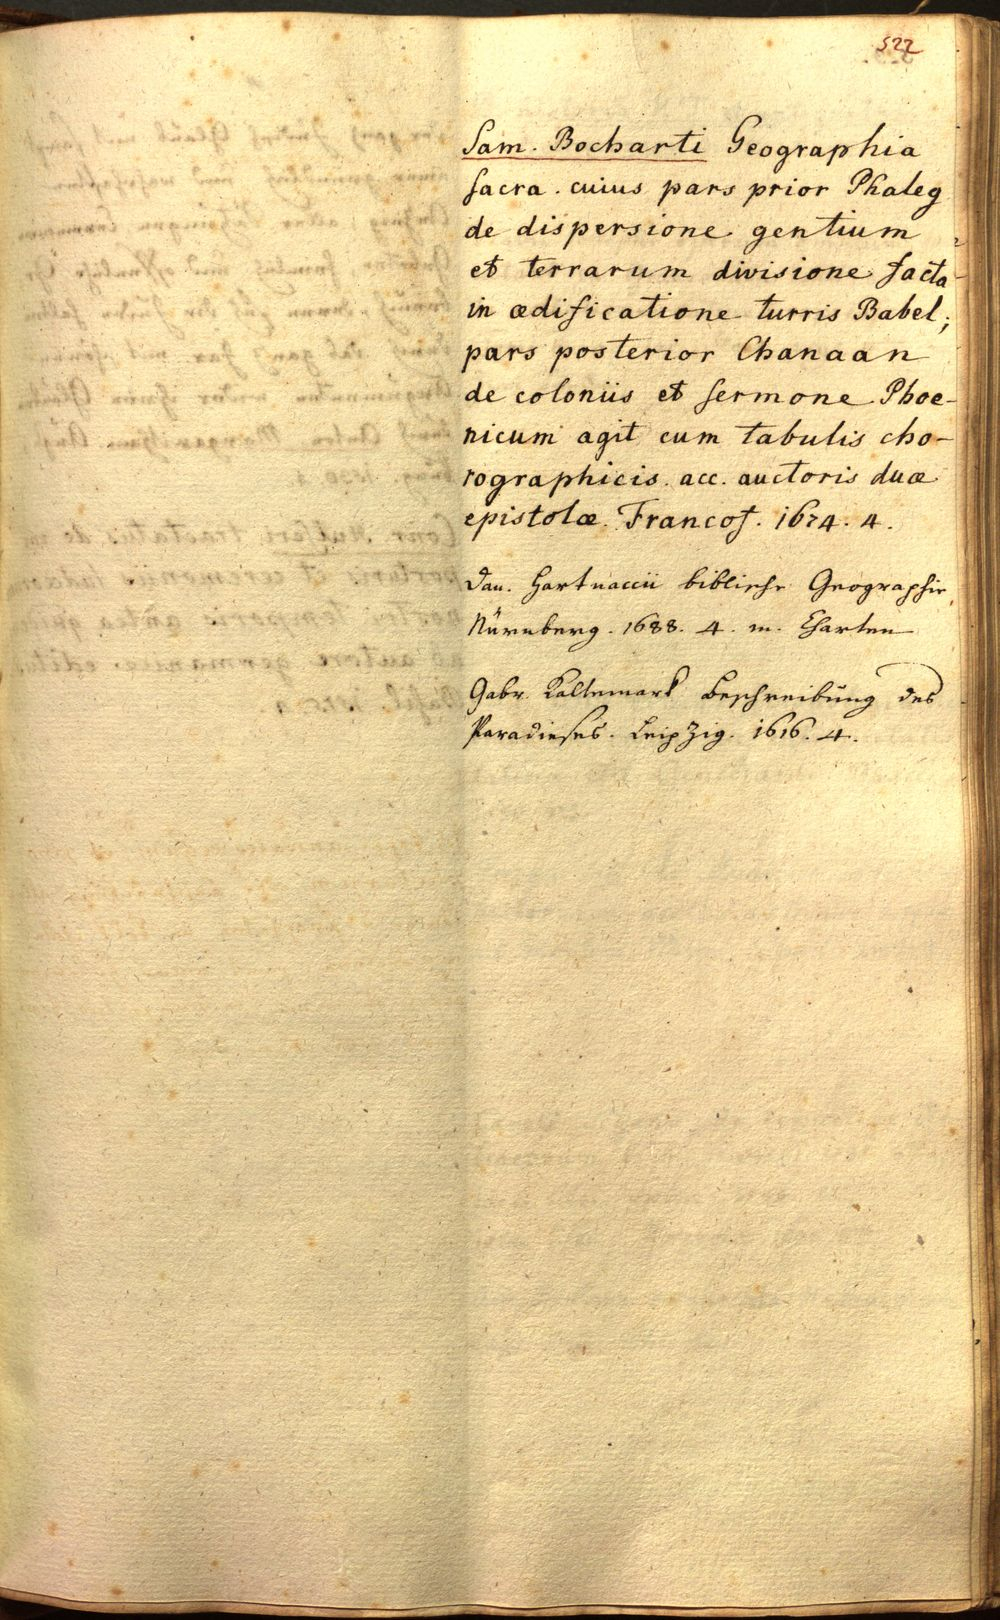 522
Sam. Bocharti Geographia
sacra. cuius pars prior Phaleg
de dispersione gentium
et terrarum divisione facta
in ædificatione turris Babel;
pars posterior Chanaan
de coloniis et sermone Phoe-
nicum agit cum tabulis cho-
rographicis. acc. auctoris duæ
epistolæ. Francof. 1674. 4.
Dan. Hartnaccii biblische Geographie
Nürnberg. 1688. 4. m. Charten
Gabr. Kaltemark Beschreibung des
Paradieses. Leipzig. 1616. 4.